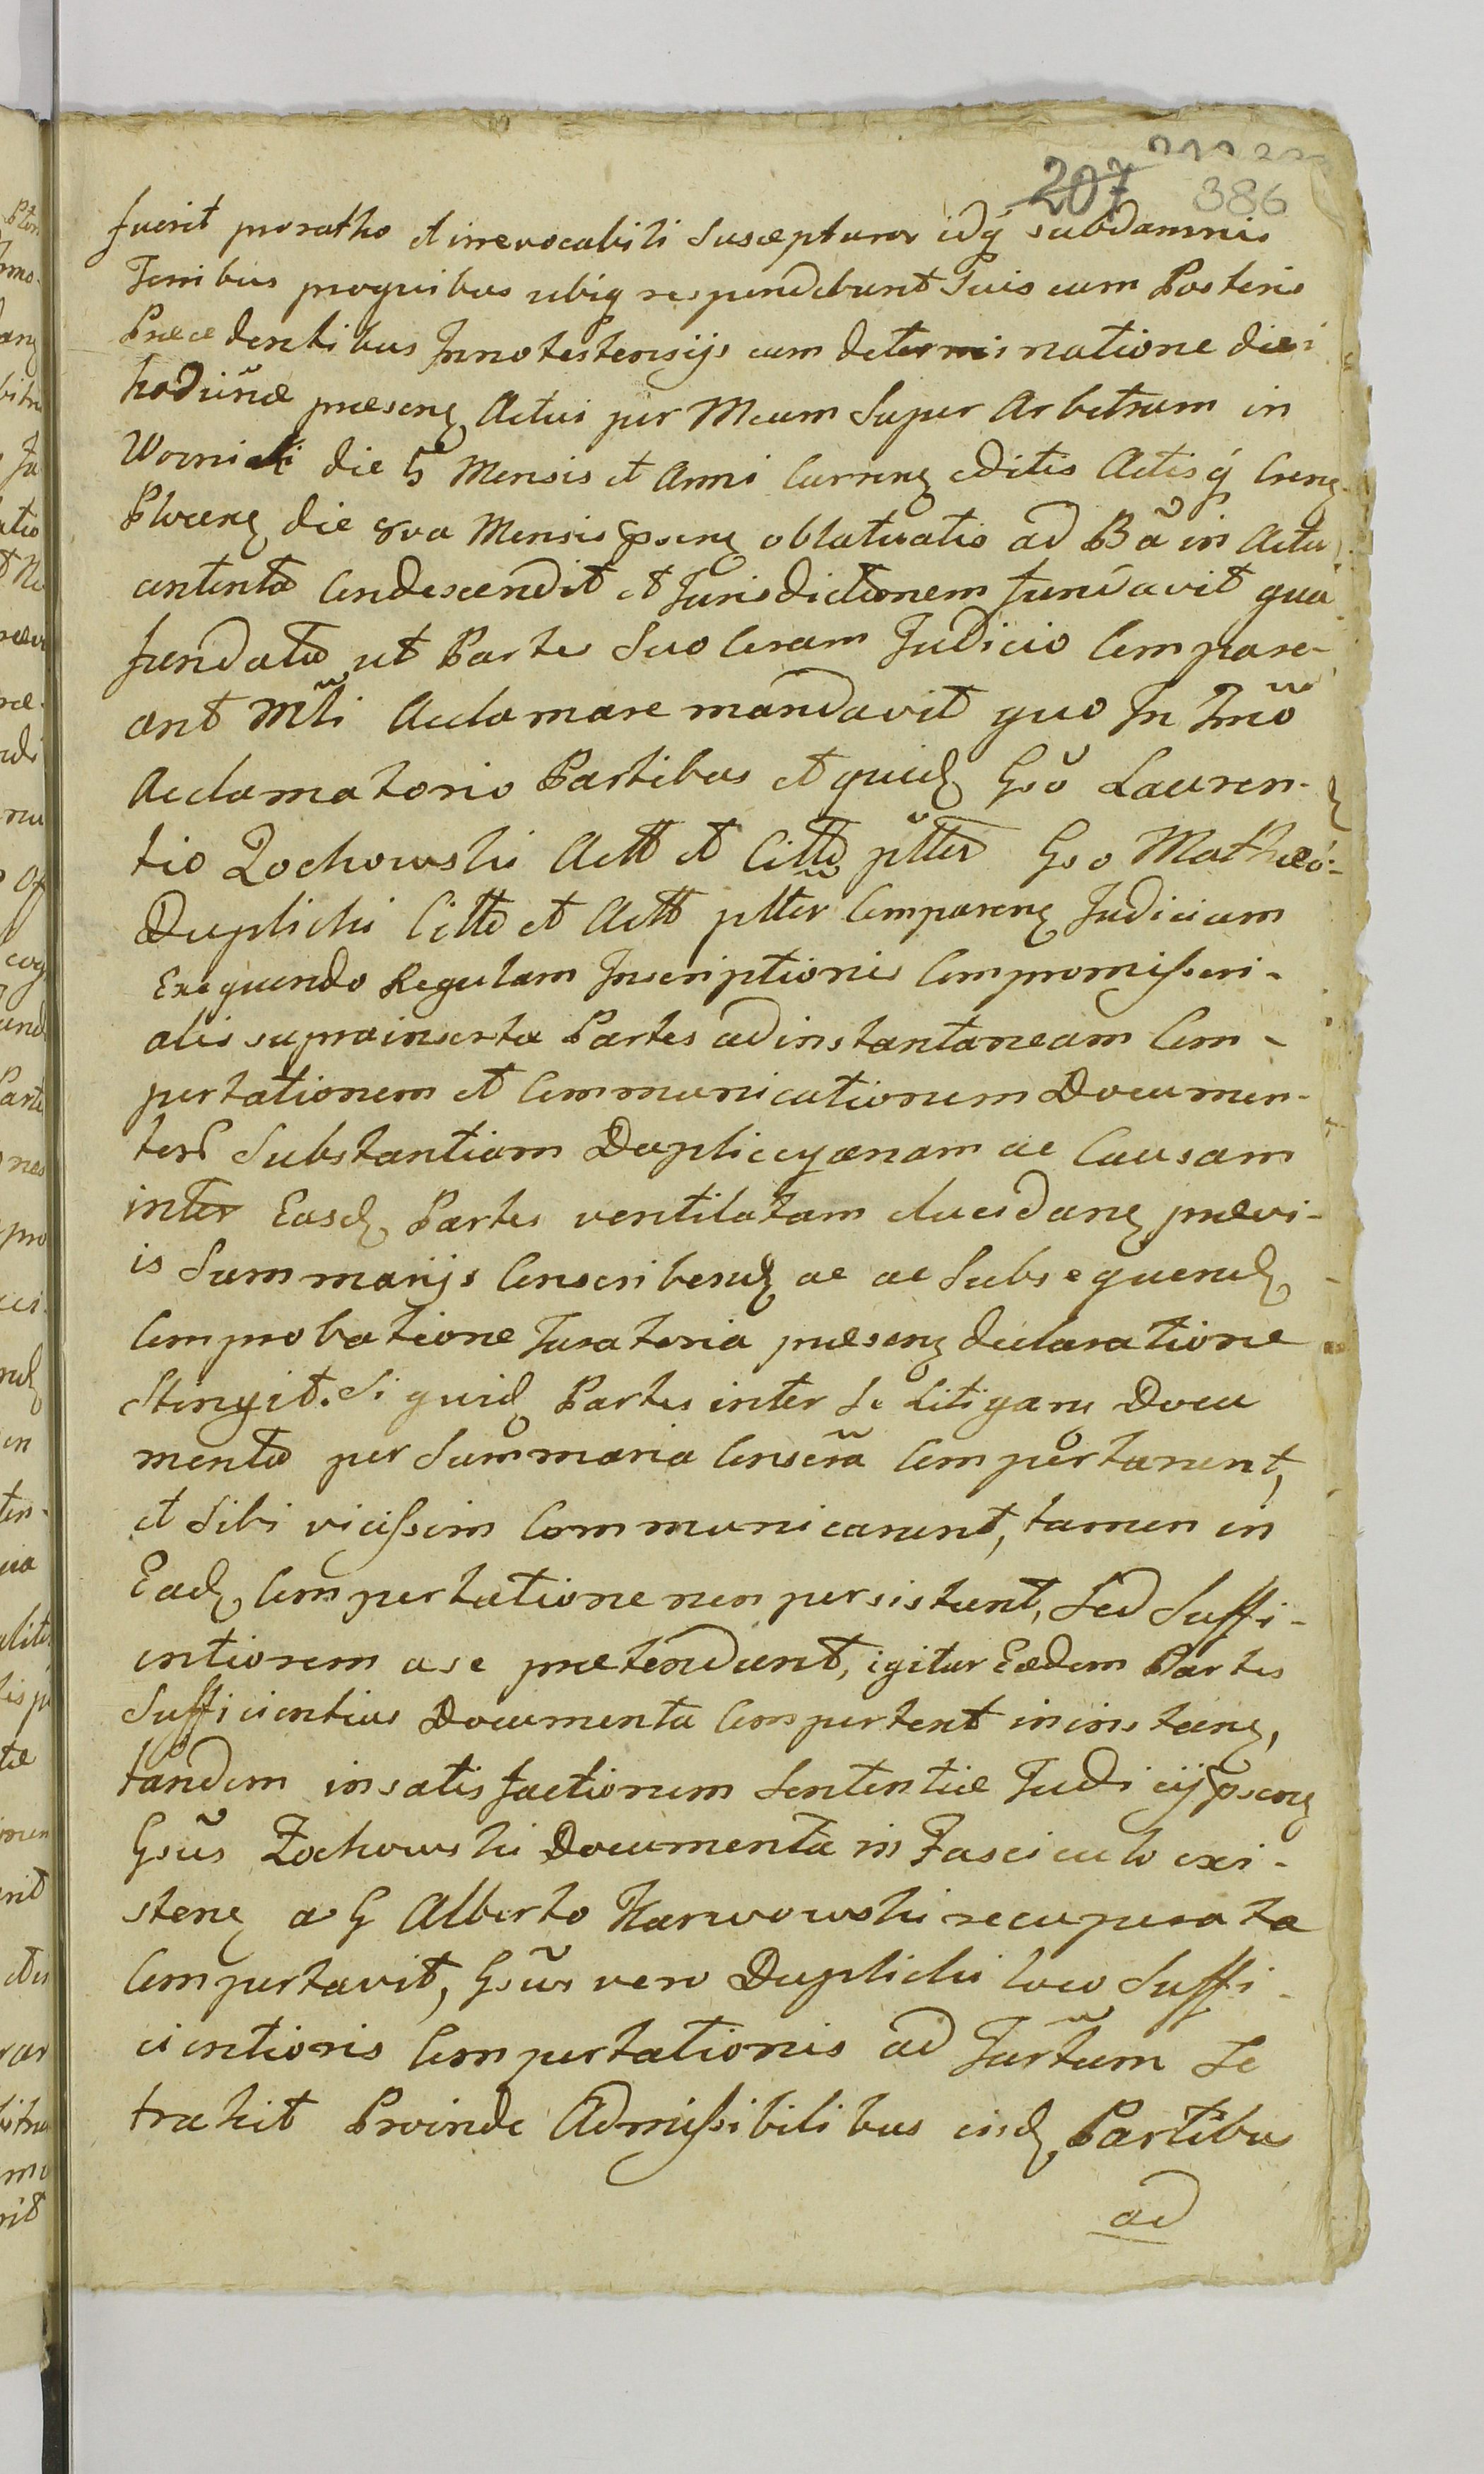 207 386
fuerit pro ratho et irrevocabili Suscepturos idq́ sub damnis
Terribus pro quibus ubiq respondebunt Suis cum Posteris
Præcedentibus Innotestensijs cum determinatione diei
hodiernæ præseng Actui per Meum Super Arbitrum in
die 5 Mensis et Anni Curreng editis Actisq́ Creng
Ploceng die 8va Mensis pseng oblatuatis ad Bā in Actu
contenta Condescendit et Jurisdictionem fundavit qua
fundata ut Partes Suo Coram Judicio Compare-
ant Mtĩi Acclamare mandavit quo In Tm̃o
Acclamatorio Partibus et quidg Gsõ Lauren-
tio Zochowski Actt et Citto ptter Gso Mathæo
Duplicki Citto et Actt ptter Compareng Judicium
Exequendo Regulam Inscriptionis Compromisseri-
alis suprainserta Partes ad instantaneam Com-
portationem et Communicationem Documen-
tor Substantiam Duplicyanam ac Causam
inter Easdg Partes ventilatam elucidang prævi-
is Summarijs Conscribendg ac ac Subsequendg
Comprobatione Juratoria præseng declaratione
Stingit. Si quidg Partes inter Se Litigang Docu
menta per Summaria Conscrã Comportarunt,
et Sibi vicissim Communicarunt, tamen in
Eadg Comportatione non persistunt, Sed Suffi-
entiorem a se prætendunt, igitur Eædem Partes
Sufficientius Documenta Comportent in instang,
tandem in satisfactionem Sententiæ Judicij pseng
Gsũs Zochowski Documenta in Fasciculo exi-
steng a G Alberto Karwowski recuperata
Comportavit, Gsũs vero Duplicki loco Suffi-
cientioris Comportationis ad Jurtũm Se
trahit Proinde Admissibilibus iisdg Partibus
ad